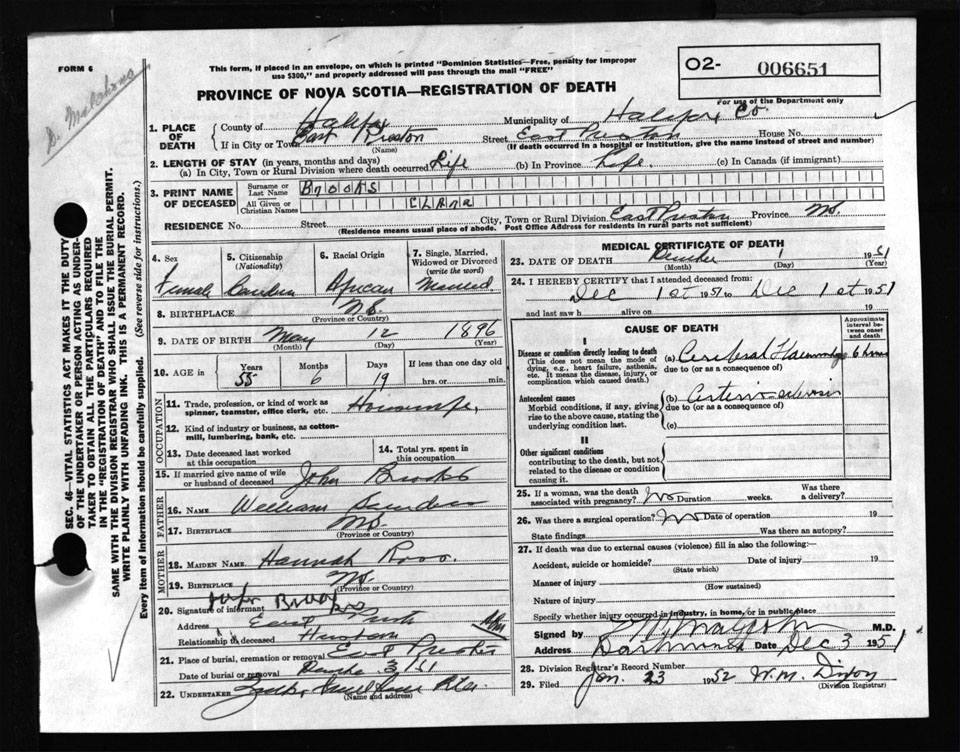 FORM 6
This form, if placed in an envelope, on which is printed "Dominion Statistics—Free, penalty for improper
use $300," and properly addressed will pass through the mail "FREE"
O2- 006651
For use of the Department only
PROVINCE OF NOVA SCOTIA—REGISTRATION OF DEATH
1. PLACE OF DEATH
County of Halifax Municipality of Halifax Co
If in City or Town East Preston (Name) Street East Preston House No.
(If death occurred in a hospital or institution, give the name instead of street and number)
2. LENGTH OF STAY (in years, months and days)
(a) In City, Town or Rural Division where death occurred Life (b) In Province Life. (c) In Canada (if immigrant)
3. PRINT NAME OF DECEASED
Surname or Last Name Brooks
All Given or Christian Names Clara
RESIDENCE No. Street City, Town or Rural Division East Preston Province NS.
(Residence means usual place of abode. Post Office Address for residents in rural parts not sufficient)
4. Sex Female
5. Citizenship (Nationality) Canadian
6. Racial Origin African
7. Single, Married, Widowed or Divorced (write the word) Married
8. BIRTHPLACE NS. (Province or Country)
9. DATE OF BIRTH May 12 1896
(Month) (Day) (Year)
10. AGE in Years 55 Months 6 Days 19 If less than one day hrs. or min.
OCCUPATION
11. Trade, profession, or kind of work as spinner, teamster, office clerk, etc. Housewife,
12. Kind of industry or business, as cotton-mill, lumbering, bank, etc.
13. Date deceased last worked at this occupation
14. Total yrs. spent in this occupation
15. If married give name of wife or husband of deceased John Brooks
FATHER
16. NAME William Saunders
17. BIRTHPLACE NS. (Province or Country)
MOTHER
18. MAIDEN NAME Hannah Ross.
19. BIRTHPLACE NS. (Province or Country)
20. Signature of informant John Brooks
Address East Preston
Relationship to deceased Husband
21. Place of burial, cremation or removal East Preston
Date of burial or removal 3/51
22. UNDERTAKER
(Name and address)
MEDICAL CERTIFICATE OF DEATH
23. DATE OF DEATH December 1 1951
(Month) (Day) (Year)
24. I HEREBY CERTIFY that I attended deceased from:
Dec 1st 1951 to Dec 1st 1951
and last saw h alive on 19
CAUSE OF DEATH
Approximate interval between onset and death
I
Disease or condition directly leading to death
(This does not mean the mode of dying, e.g., heart failure, asthenia, etc. It means the disease, injury, or complication which caused death.)
(a) Cerebral Haemorrhage 6 hours
due to (or as a consequence of)
Antecedent causes
Morbid conditions, if any, giving rise to the above cause, stating the underlying condition last.
(b) Arterio-sclerosis
due to (or as a consequence of)
(c)
II
Other significant conditions
contributing to the death, but not related to the disease or condition causing it.
25. If a woman, was the death associated with pregnancy? No Duration weeks. Was there a delivery?
26. Was there a surgical operation? No Date of operation 19
State findings Was there an autopsy?
27. If death was due to external causes (violence) fill in also the following:—
Accident, suicide or homicide? Date of injury 19
(State which)
Manner of injury
(How sustained)
Nature of injury
Specify whether injury occurred in industry, in home, or in public place
Signed by Malcolm M.D.
Address Dartmouth Date Dec 3 1951
28. Division Registrar's Record Number
29. Filed Jan. 23 1952 W.M. Dixon
(Division Registrar)
SEC. 46—VITAL STATISTICS ACT MAKES IT THE DUTY
OF THE UNDERTAKER OR PERSON ACTING AS UNDER-
TAKER TO OBTAIN ALL THE PARTICULARS REQUIRED
IN THE "REGISTRATION OF DEATH" AND TO FILE THE
SAME WITH THE DIVISION REGISTRAR WHO SHALL ISSUE THE BURIAL PERMIT.
WRITE PLAINLY WITH UNFADING INK. THIS IS A PERMANENT RECORD.
Every item of information should be carefully supplied. (See reverse side for instructions.)